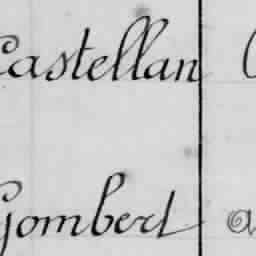 Castellan
Gombert